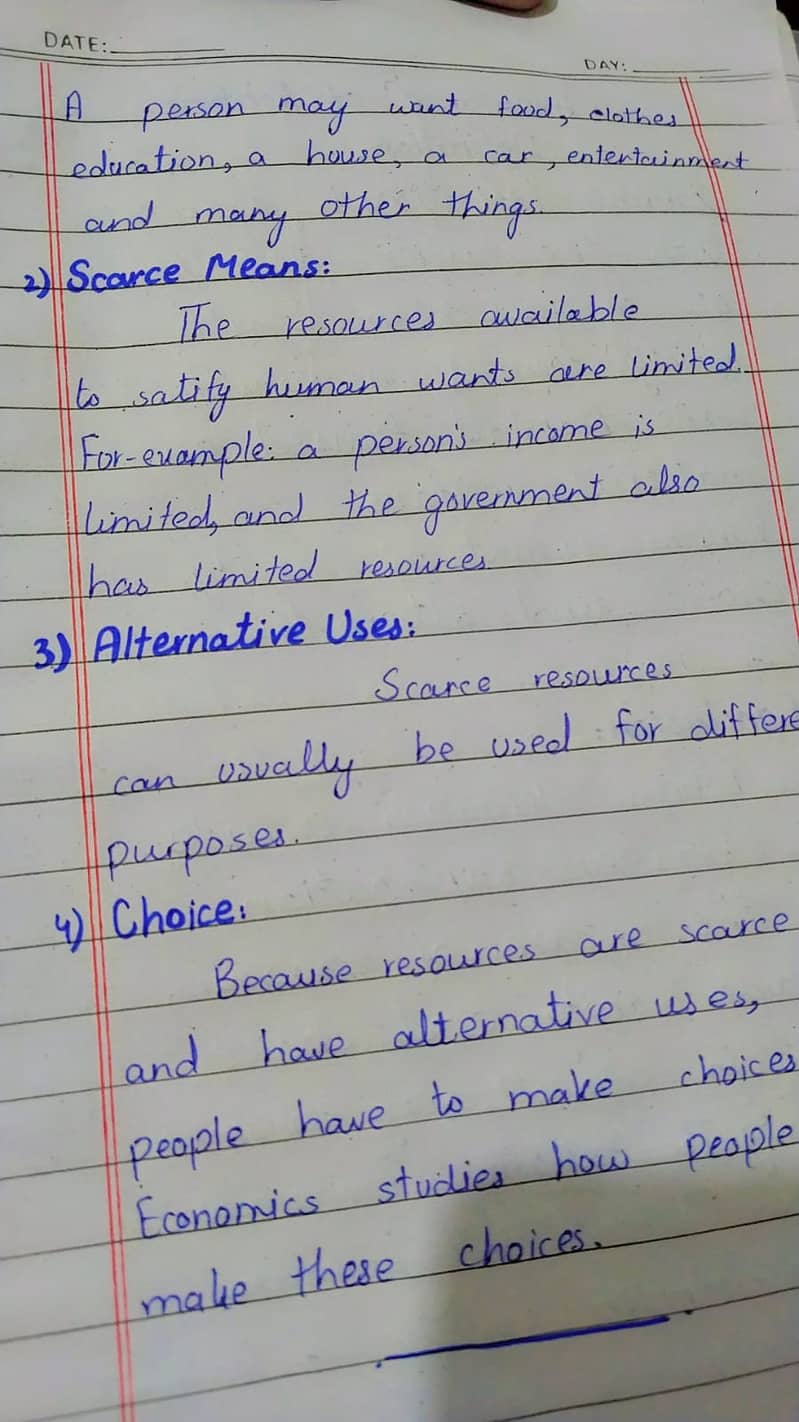 DATE:
DAY:
A person may want food, clothes
education, a house, a car, entertainment
and many other things.
2) Scarce Means:
The resources available
to satify human wants are limited.
For-example: a person's income is
limited, and the government also
has limited resources
3) Alternative Uses:
Scarce resources
can usually be used for differe
purposes.
4) Choice:
Because resources are scarce
and have alternative uses,
people have to make choices
Economics studies how people
make these choices.